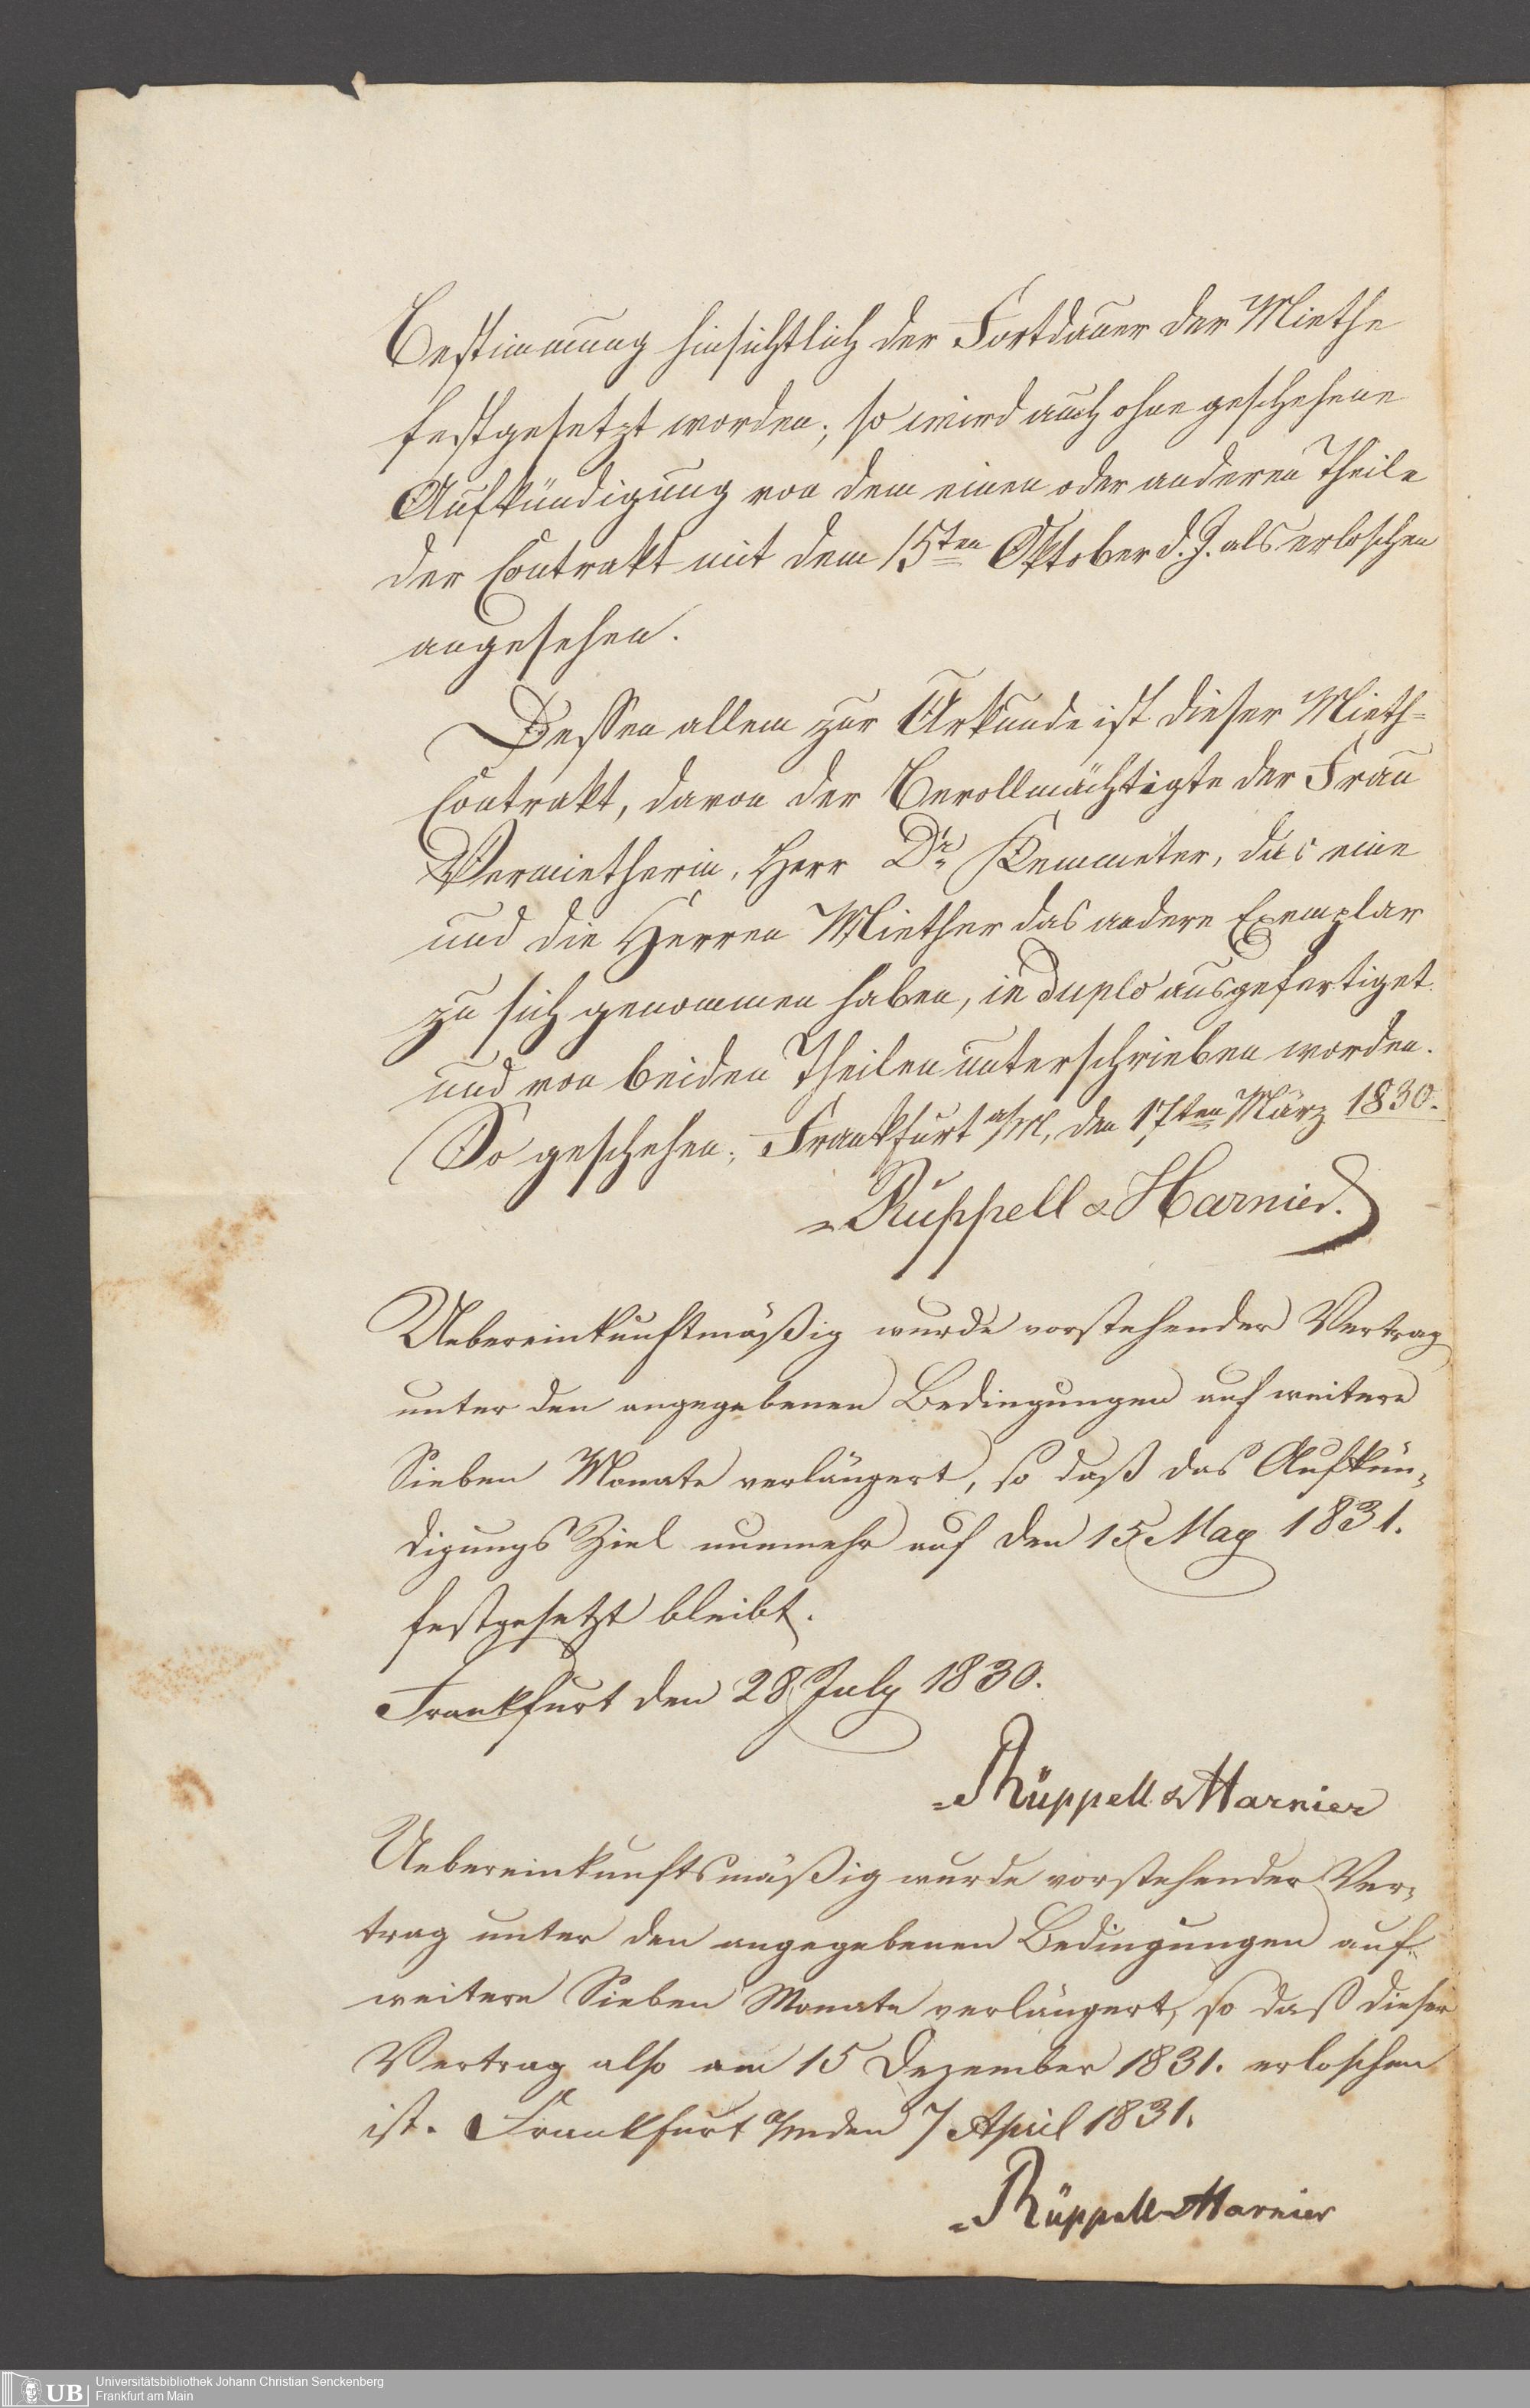 Bestimmung hinsichtlich der Fortdauer der Miethe
festgesetzt worden; so wird auch ohne geschehene
Aufkündigung von dem einen oder anderen Theile
der Contrakt mit dem 15ten Oktober d. J. als erloschen
angesehen.
Dessen allem zur Urkunde ist dieser Mieth-
Contrakt, davon der Bevollmächtigte der Frau
Vermietherin, Herr Dr. Kemmeter, das eine
und die Herren Miether das andere Exemplar
zu sich genommen haben, in duplo ausgefertiget
und von beiden Theilen unterschrieben worden.
So geschehen, Frankfurt a/M, den 17ten März 1830.
Rüppell & Harnier.
Uebereinkunftmäßig wurde vorstehender Vertrag
unter den angegebenen Bedingungen auf weitere
Sieben Monate verlängert, so daß das Aufkün-
digungs Ziel nunmehr auf den 15 May 1831.
festgesetzt bleibt.
Frankfurt den 28 July 1830.
Rüppell & Harnier
Uebereinkunftsmäßig wurde vorstehender Ver-
trag unter den angegebenen Bedingungen auf
weitere Sieben Monate verlängert, so daß dieser
Vertrag also am 15 Dezember 1831. erloschen
ist. Frankfurt a/m den 7 April 1831.
Rüppell & Harnier
UB Universitätsbibliothek Johann Christian Senckenberg
Frankfurt am Main